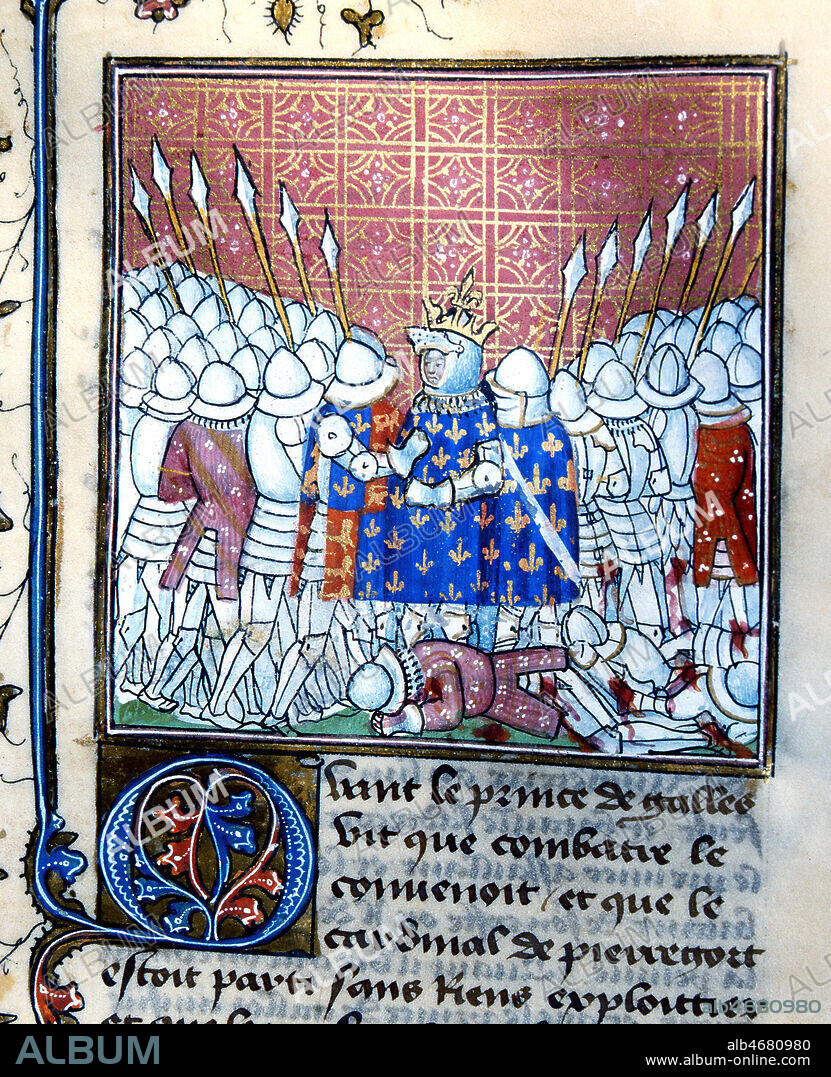 Quant le prince de galles
vit que combatre le
convenoit / et que le
cardinal de pierregort
estoit parti sans Riens exploittier
ALBUM
alb4680980
www.album-online.com